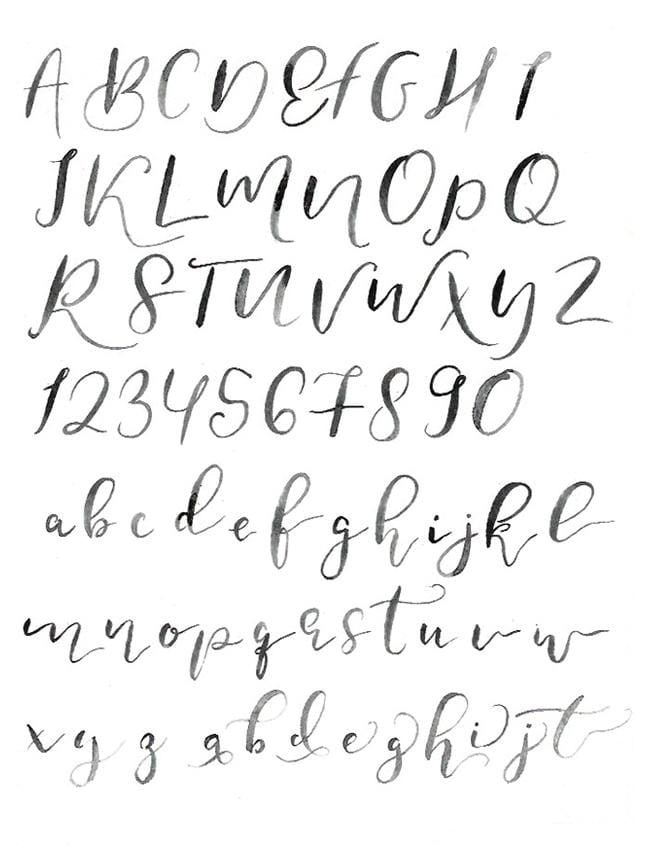 A B C D E F G H I
J K L M N O P Q
R S T U V W X Y Z
1 2 3 4 5 6 7 8 9 0
a b c d e f g h i j k l
m n o p q r s t u v w
x y z a b d e g h i j t